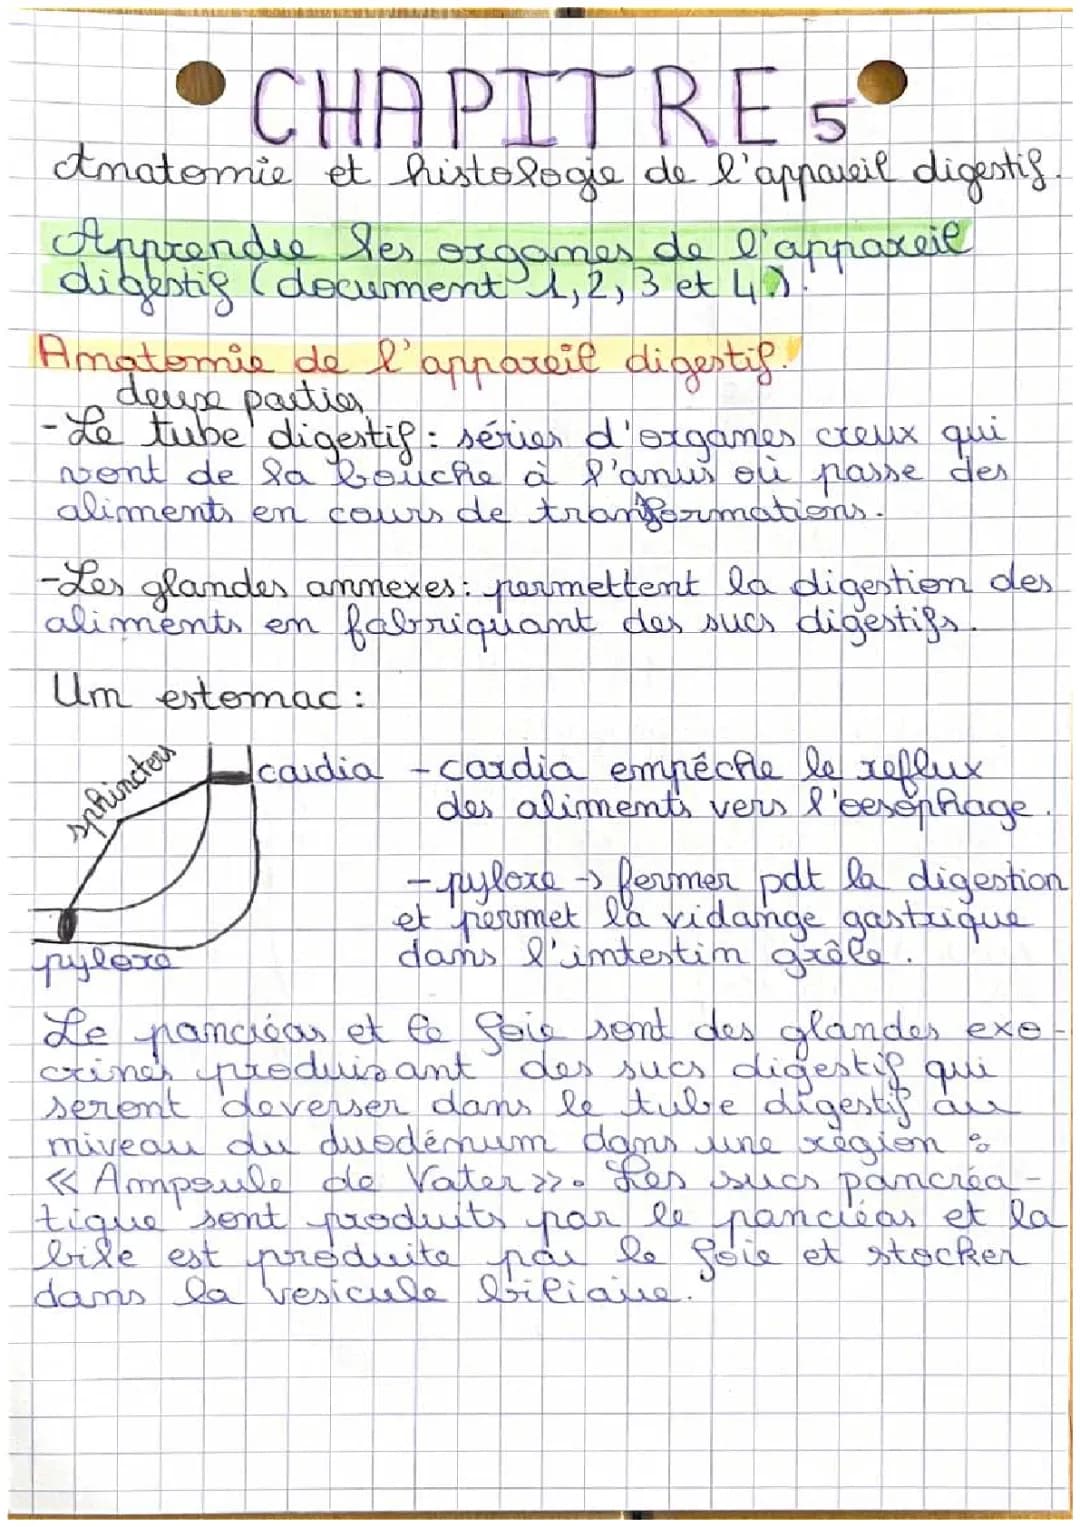 CHAPITRE 5
Anatomie et histologie de l'appareil digestif.
Apprendre les organes de l'appareil
digestif (document 1, 2, 3 et 4).
Anatomie de l'appareil digestif.
deux parties
- Le tube digestif : séries d'organes creux qui
vont de la bouche à l'anus où passe des
aliments en cours de transformations.
- Les glandes annexes : permettent la digestion des
aliments en fabriquant des sucs digestifs.
Un estomac :
sphincters
cardia
- cardia empêche le reflux
des aliments vers l'oesophage.
- pylore → fermer pdt la digestion
et permet la vidange gastrique
dans l'intestin grêle.
pylore
Le pancréas et le foie sont des glandes exo-
crines produisant des sucs digestif qui
seront deverser dans le tube digestif au
niveau du duodénum dans une région :
« Ampoule de Vater ». Les sucs pancréa-
tique sont produits par le pancréas et la
bile est produite par le foie et stocker
dans la vesicule biliaire.